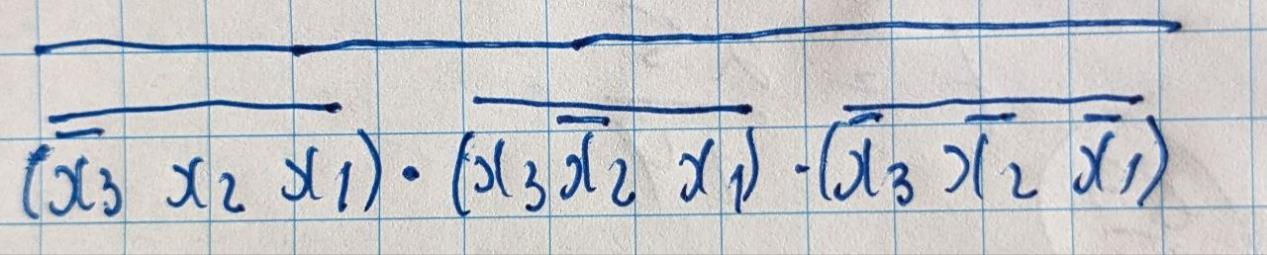 $\overline{\overline{(\overline{x}_3 x_2 x_1)} \cdot \overline{(x_3 \overline{x}_2 x_1)} \cdot \overline{(\overline{x}_3 \overline{x}_2 \overline{x}_1)}}$